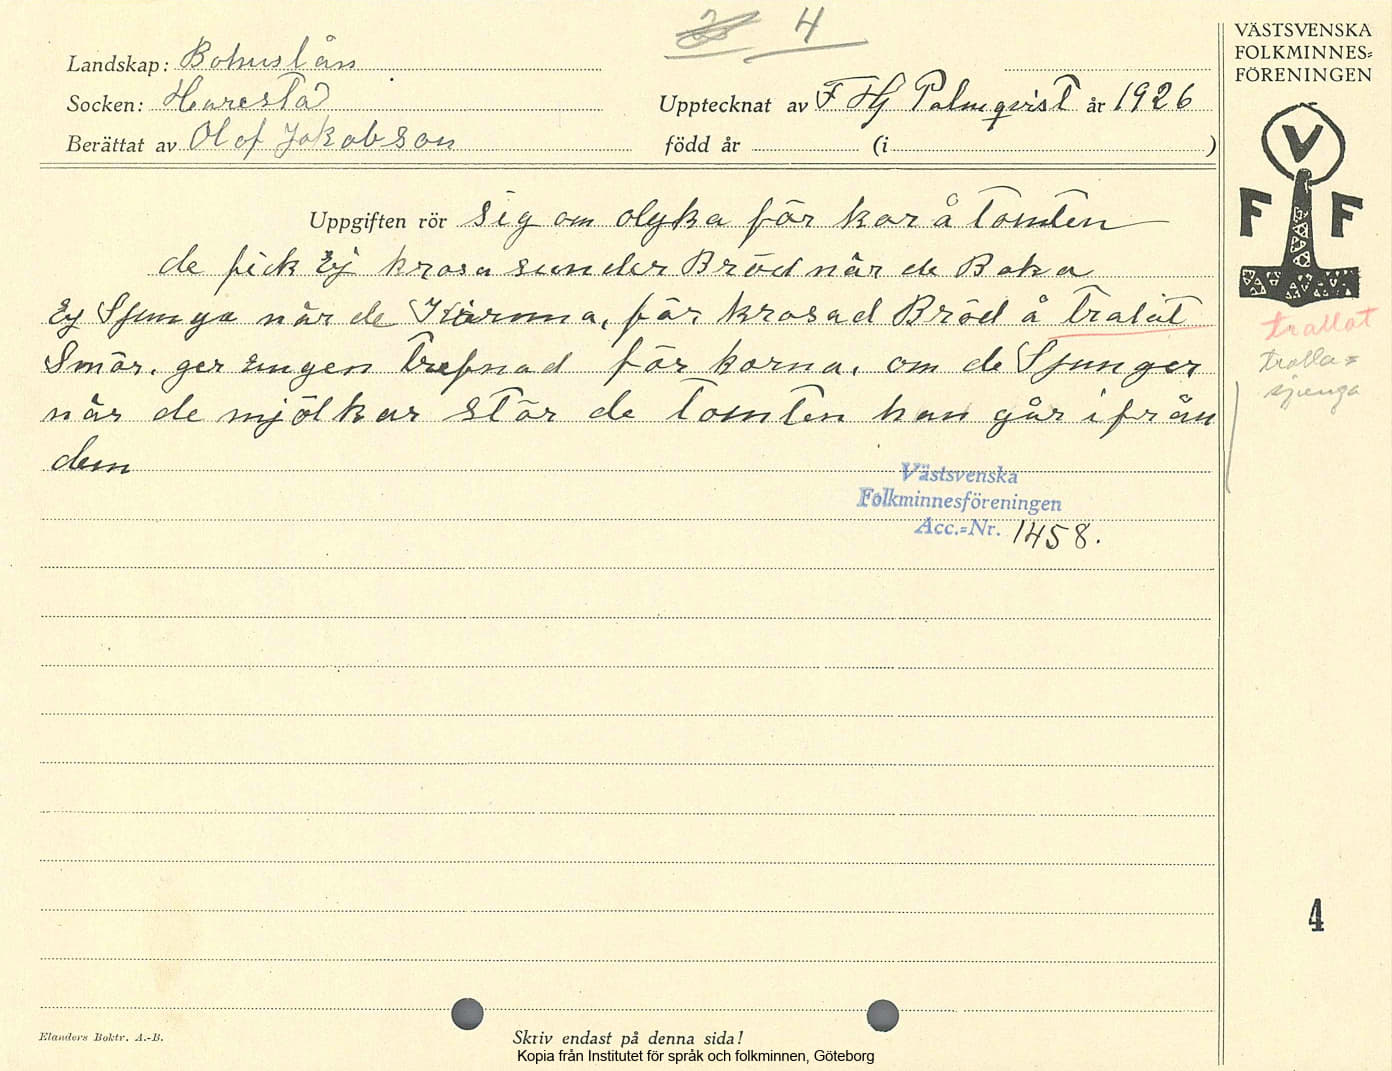 4
VÄSTSVENSKA
FOLKMINNES=
FÖRENINGEN
Landskap: Bohuslän
Socken: Harestad
Upptecknat av F Hj Palmqvist år 1926
Berättat av Olof Jakobson
född år (i )
V
F F
Uppgiften rör Sig om olyka för kor å Tomten
de fick Ej krosa sunder Bröd när de Baka
Ej Sjunga när de Kiärnna, för krosad Bröd å Tralat
Smör. ger Engen Trefnad för korna, om de Sjunger
när de mjölkar Stör de Tomten han går ifrån
dem
trallat
tralla=
sjunga
Västsvenska
Folkminnesföreningen
Acc.=Nr. 1458.
4
Elanders Boktr. A.-B.
Skriv endast på denna sida!
Kopia från Institutet för språk och folkminnen, Göteborg